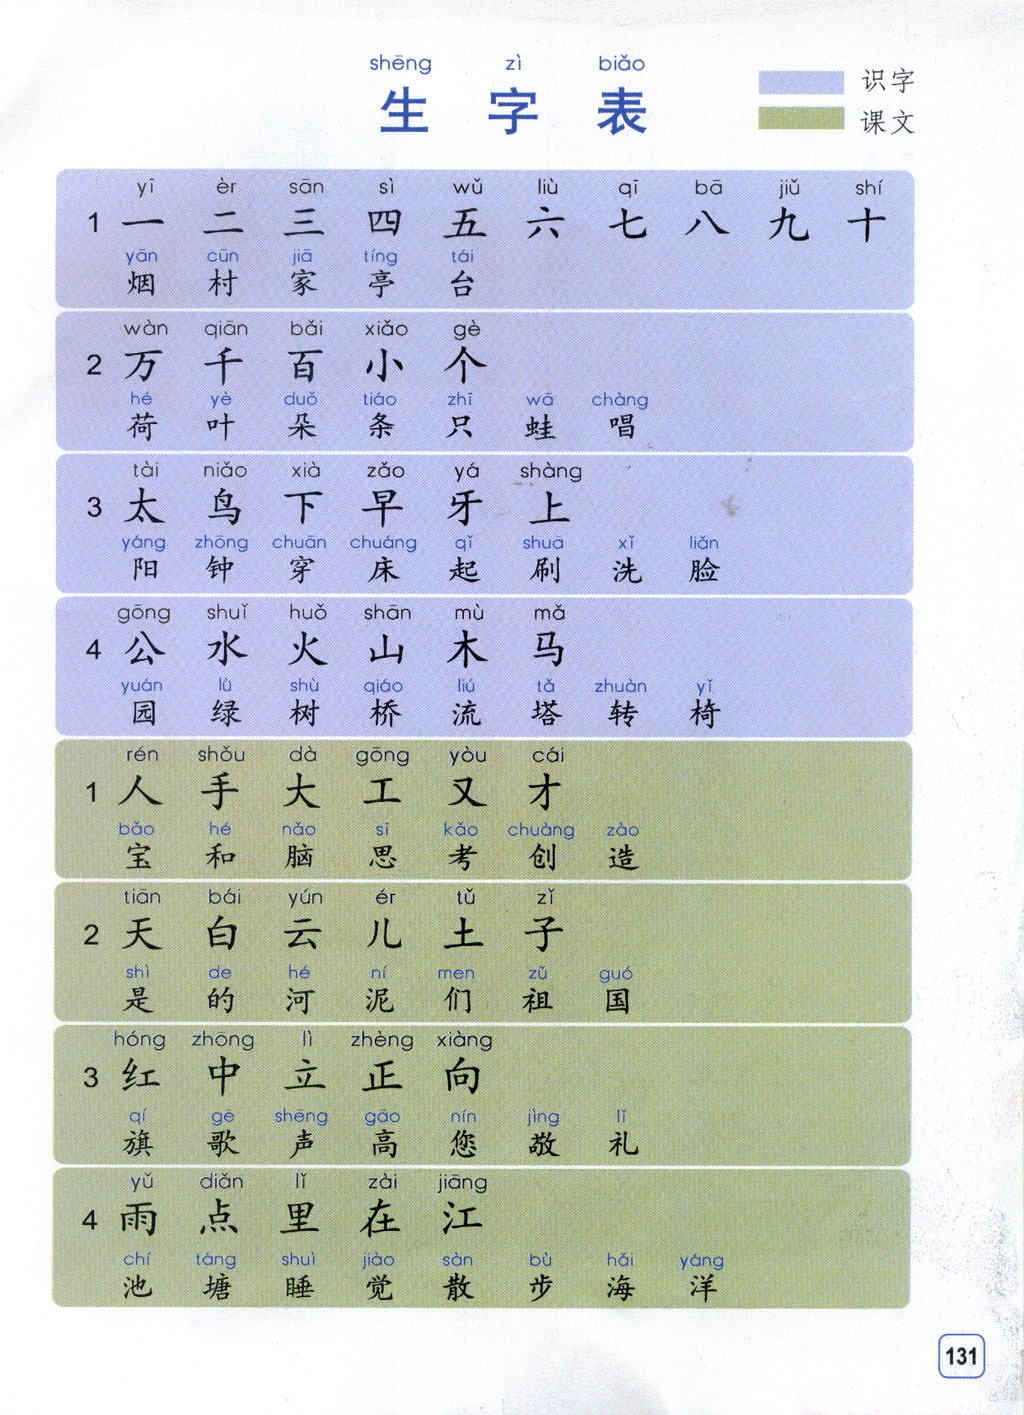 shēng zì biǎo
生 字 表
识字
课文
yī èr sān sì wǔ liù qī bā jiǔ shí
1 一 二 三 四 五 六 七 八 九 十
yān cūn jiā tíng tái
烟 村 家 亭 台
wàn qiān bǎi xiǎo gè
2 万 千 百 小 个
hé yè duǒ tiáo zhī wā chàng
荷 叶 朵 条 只 蛙 唱
tài niǎo xià zǎo yá shàng
3 太 鸟 下 早 牙 上
yáng zhōng chuān chuáng qǐ shuā xǐ liǎn
阳 钟 穿 床 起 刷 洗 脸
gōng shuǐ huǒ shān mù mǎ
4 公 水 火 山 木 马
yuán lǜ shù qiáo liú tǎ zhuàn yǐ
园 绿 树 桥 流 塔 转 椅
rén shǒu dà gōng yòu cái
1 人 手 大 工 又 才
bǎo hé nǎo sī kǎo chuàng zào
宝 和 脑 思 考 创 造
tiān bái yún ér tǔ zǐ
2 天 白 云 儿 土 子
shì de hé ní men zǔ guó
是 的 河 泥 们 祖 国
hóng zhōng lì zhèng xiàng
3 红 中 立 正 向
qí gē shēng gāo nín jìng lǐ
旗 歌 声 高 您 敬 礼
yǔ diǎn lǐ zài jiāng
4 雨 点 里 在 江
chí táng shuì jiào sàn bù hǎi yáng
池 塘 睡 觉 散 步 海 洋
131